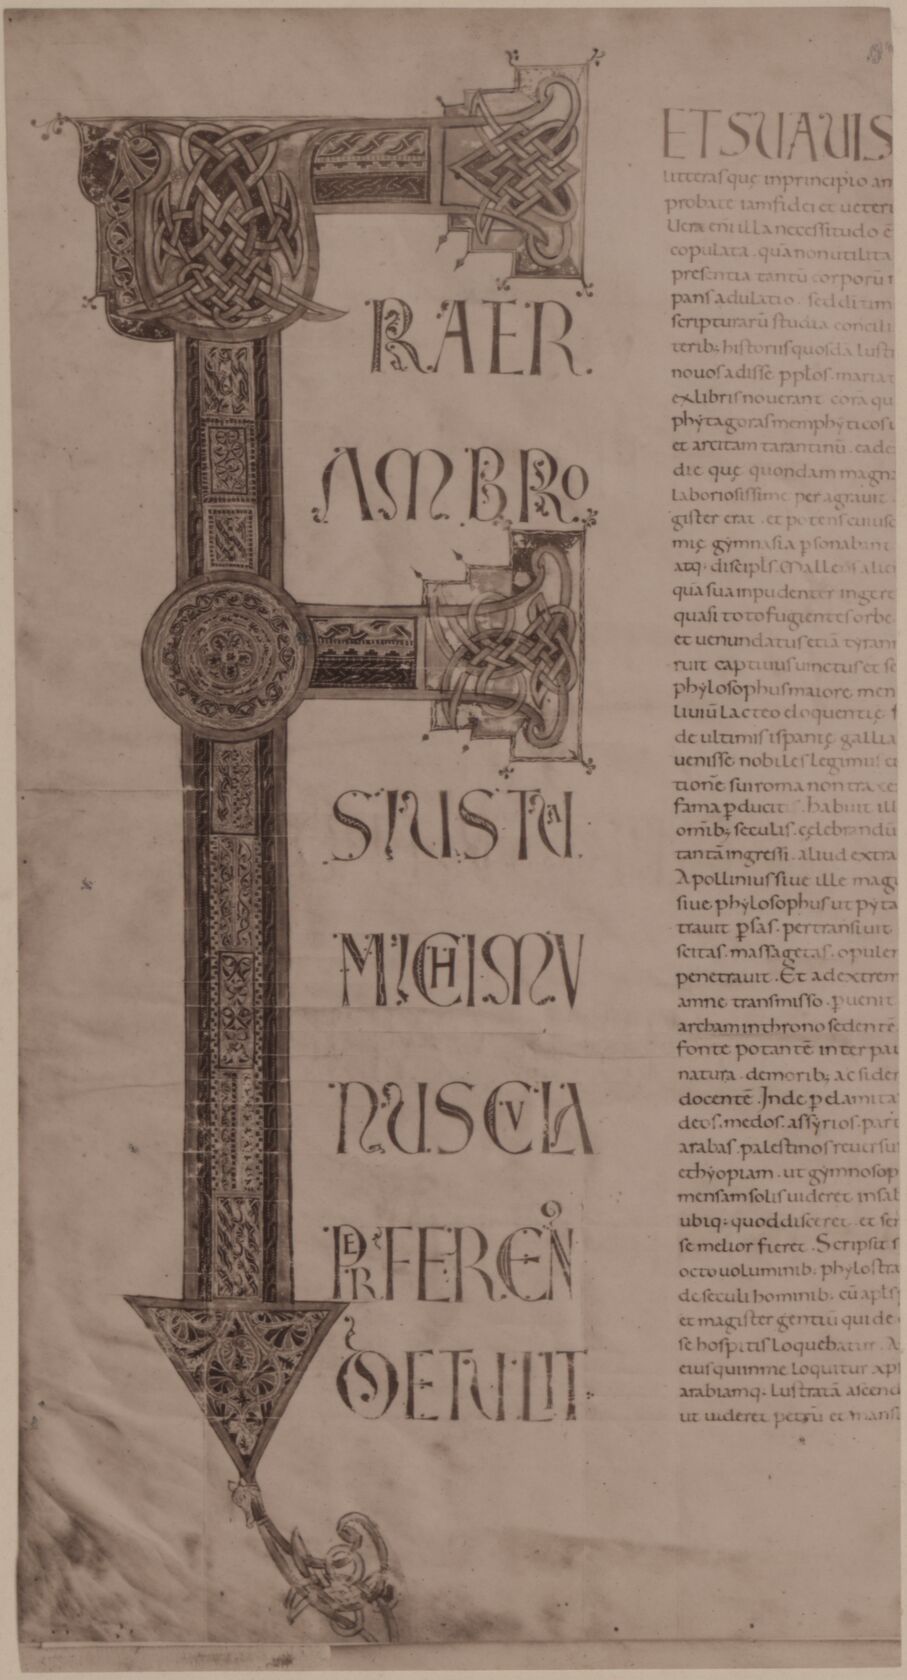 F
RATER.
AMBRO
SIUSTUA
MICHIMU
NUSCULA
PERFERENS
DETULIT
ETSUAUIS
litterasquę inprincipio am
probate iamfidei et ueteri
Uera enī illa necessitudo ē
copulata. quā nonutilita
presentia tantū corporū
pansadulatio. seddi tim
scripturarū studia concili
terib; historiis quosdā lust
nouosadisse pplos. maria t
exlibris nouerant cora qu
phytagoras memphyticos
et arcitam tarantinū. eade
die quę quondam magn
laboriosissime peragrauit.
gister erat. et potens cuiusc
mię gymnasia psonabant
atq; discipls. Mallens alie
quā sua inpudenter ingere
quasi toto fugientes orbe.
et uenundatus etiā tyrann
ruit captiuus uinctus et se
phylosophus maiore men
liuiū lacteo eloquentię f
de ultimis ispanię gallia
uenisse nobiles legimus et
tionē sui roma non traxe
fama pducit. habuit ill
omīb; seculis. cęlebrandū
tantā ingressi. aliud extra
Apollinius siue ille mag
siue phylosophus ut pyta
trauit psas. pertransiuit
scitas. massagetas. opulen
penetrauit. Et ad extrem
amne transmisso. puenit
archam inthrono sedentē
fonte potantē inter pau
natura. demorib; ac sider
docentē. Inde p elamita
deos. medos. assyrios. part
arabas. palestinos reuersus
ethyopiam. ut gymnosop
mensam solis uideret insab
ubiq; quod disceret. et sem
se melior fieret. Scripsit s
octo uoluminib; phylostra
de seculi hominib. cū apls
et magister gentiū qui de
se hospitis loquebatur. A
eius quiinme loquitur xps
arabiamq; lustratā ascend
ut uideret petrū et mans